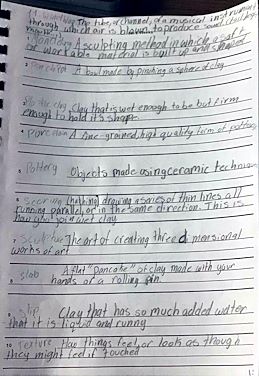 The tube, or channel, of a musical instrument
through which air is blown, to produce sound
A sculpting method in which a soft
or workable material is built up and shaped
A bowl made by pinching a sphere of clay
Clay that is wet enough to be but firm
enough to hold its shape
A fine-grained, high quality form of pottery
Pottery Objects made using ceramic technique
scoring (hatching) drawing a series of thin lines all
running parallel, or in the same direction. This is
how you join wet clay
7 sculpture The art of creating three dimensional
works of art
8 slab A flat "pancake" of clay made with your
hands or a rolling pin.
9 slip Clay that has so much added water
that it is liquid and runny
10 Texture How things feel, or look as though
they might feel if touched